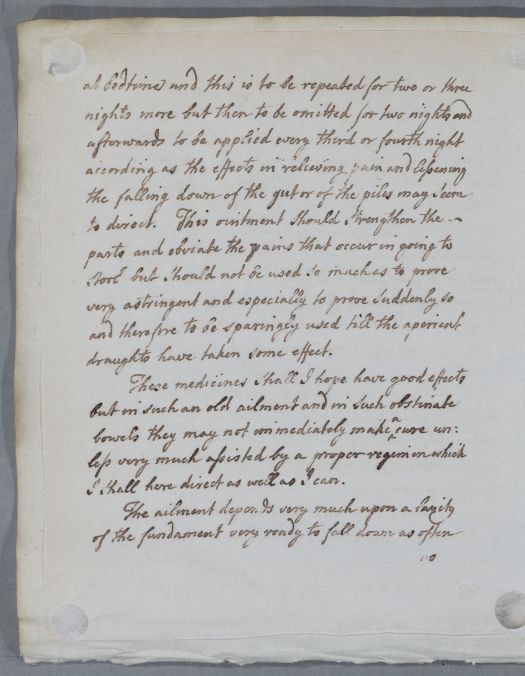 at bedtime and this is to be repeated for two or three
nights more but then to be omitted for two nights and
afterwards to be applied every third or fourth night
according as the effects in relieving pain and lessening
the falling down of the gut or of the piles may seem
to direct. This ointment should strengthen the --
parts and obviate the pains that occur in going to
stool but should not be used so much as to prove
very astringent and especially to prove suddenly so
and therefore to be sparingly used till the aperient
draughts have taken some effect.
These medicines shall I hope have good effects
but in such an old ailment and in such obstinate
bowels they may not immediately make a cure un:
less very much assisted by a proper regimen which
I shall here direct as well as I can.
The ailment depends very much upon a laxity
of the fundament very ready to fall down as often
as